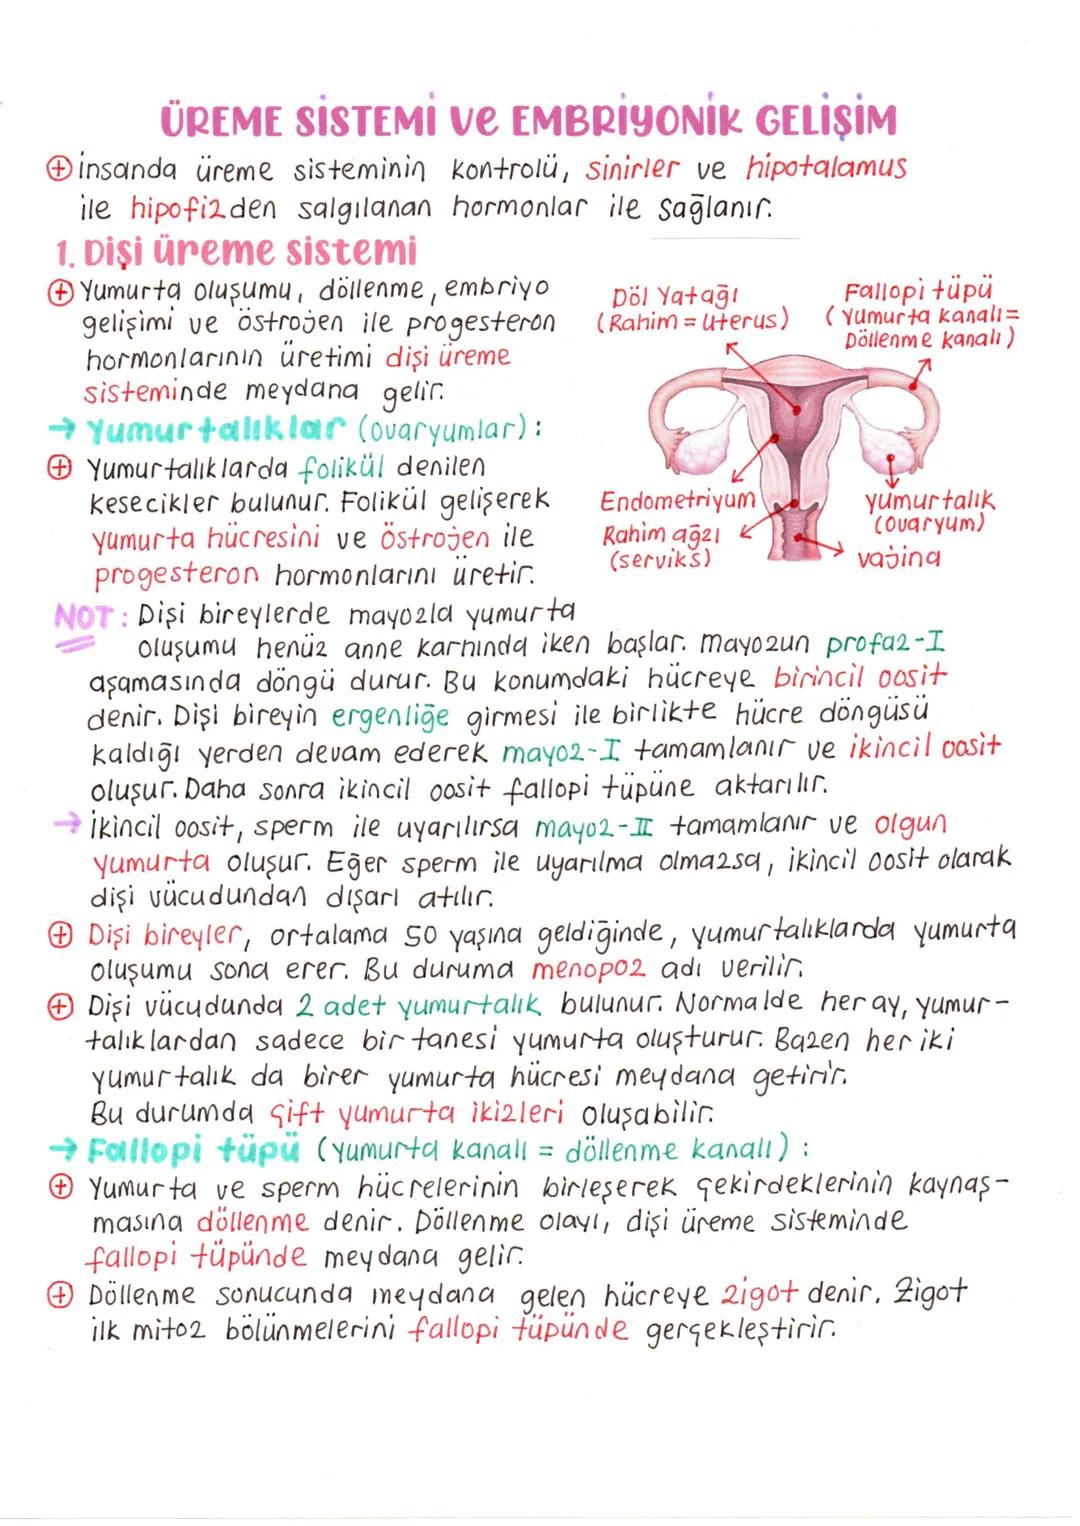 ÜREME SİSTEMİ ve EMBRİYONİK GELİŞİM
⊕ İnsanda üreme sisteminin kontrolü, sinirler ve hipotalamus
ile hipofizden salgılanan hormonlar ile sağlanır.
1. Dişi üreme sistemi
⊕ Yumurta oluşumu, döllenme, embriyo
gelişimi ve östrojen ile progesteron
hormonlarının üretimi dişi üreme
sisteminde meydana gelir.
→ Yumurtalıklar (ovaryumlar) :
⊕ Yumurtalıklarda folikül denilen
kesecikler bulunur. Folikül gelişerek
yumurta hücresini ve östrojen ile
progesteron hormonlarını üretir.
Döl Yatağı
(Rahim = Uterus)
Fallopi tüpü
(Yumurta kanalı =
Döllenme kanalı)
Endometriyum
Rahim ağzı
(serviks)
yumurtalık
(ovaryum)
vajina
NOT : Dişi bireylerde mayozla yumurta
oluşumu henüz anne karnında iken başlar. Mayozun profaz-I
aşamasında döngü durur. Bu konumdaki hücreye birincil oosit
denir. Dişi bireyin ergenliğe girmesi ile birlikte hücre döngüsü
kaldığı yerden devam ederek mayoz-I tamamlanır ve ikincil oosit
oluşur. Daha sonra ikincil oosit fallopi tüpüne aktarılır.
→ İkincil oosit, sperm ile uyarılırsa mayoz-II tamamlanır ve olgun
yumurta oluşur. Eğer sperm ile uyarılma olmazsa, ikincil oosit olarak
dişi vücudundan dışarı atılır.
⊕ Dişi bireyler, ortalama 50 yaşına geldiğinde, yumurtalıklarda yumurta
oluşumu sona erer. Bu duruma menopoz adı verilir.
⊕ Dişi vücudunda 2 adet yumurtalık bulunur. Normalde her ay, yumur-
talıklardan sadece bir tanesi yumurta oluşturur. Bazen her iki
yumurtalık da birer yumurta hücresi meydana getirir.
Bu durumda çift yumurta ikizleri oluşabilir.
→ Fallopi tüpü (yumurta kanalı = döllenme kanalı) :
⊕ Yumurta ve sperm hücrelerinin birleşerek çekirdeklerinin kaynaş-
masına döllenme denir. Döllenme olayı, dişi üreme sisteminde
fallopi tüpünde meydana gelir.
⊕ Döllenme sonucunda meydana gelen hücreye zigot denir. Zigot
ilk mitoz bölünmelerini fallopi tüpünde gerçekleştirir.